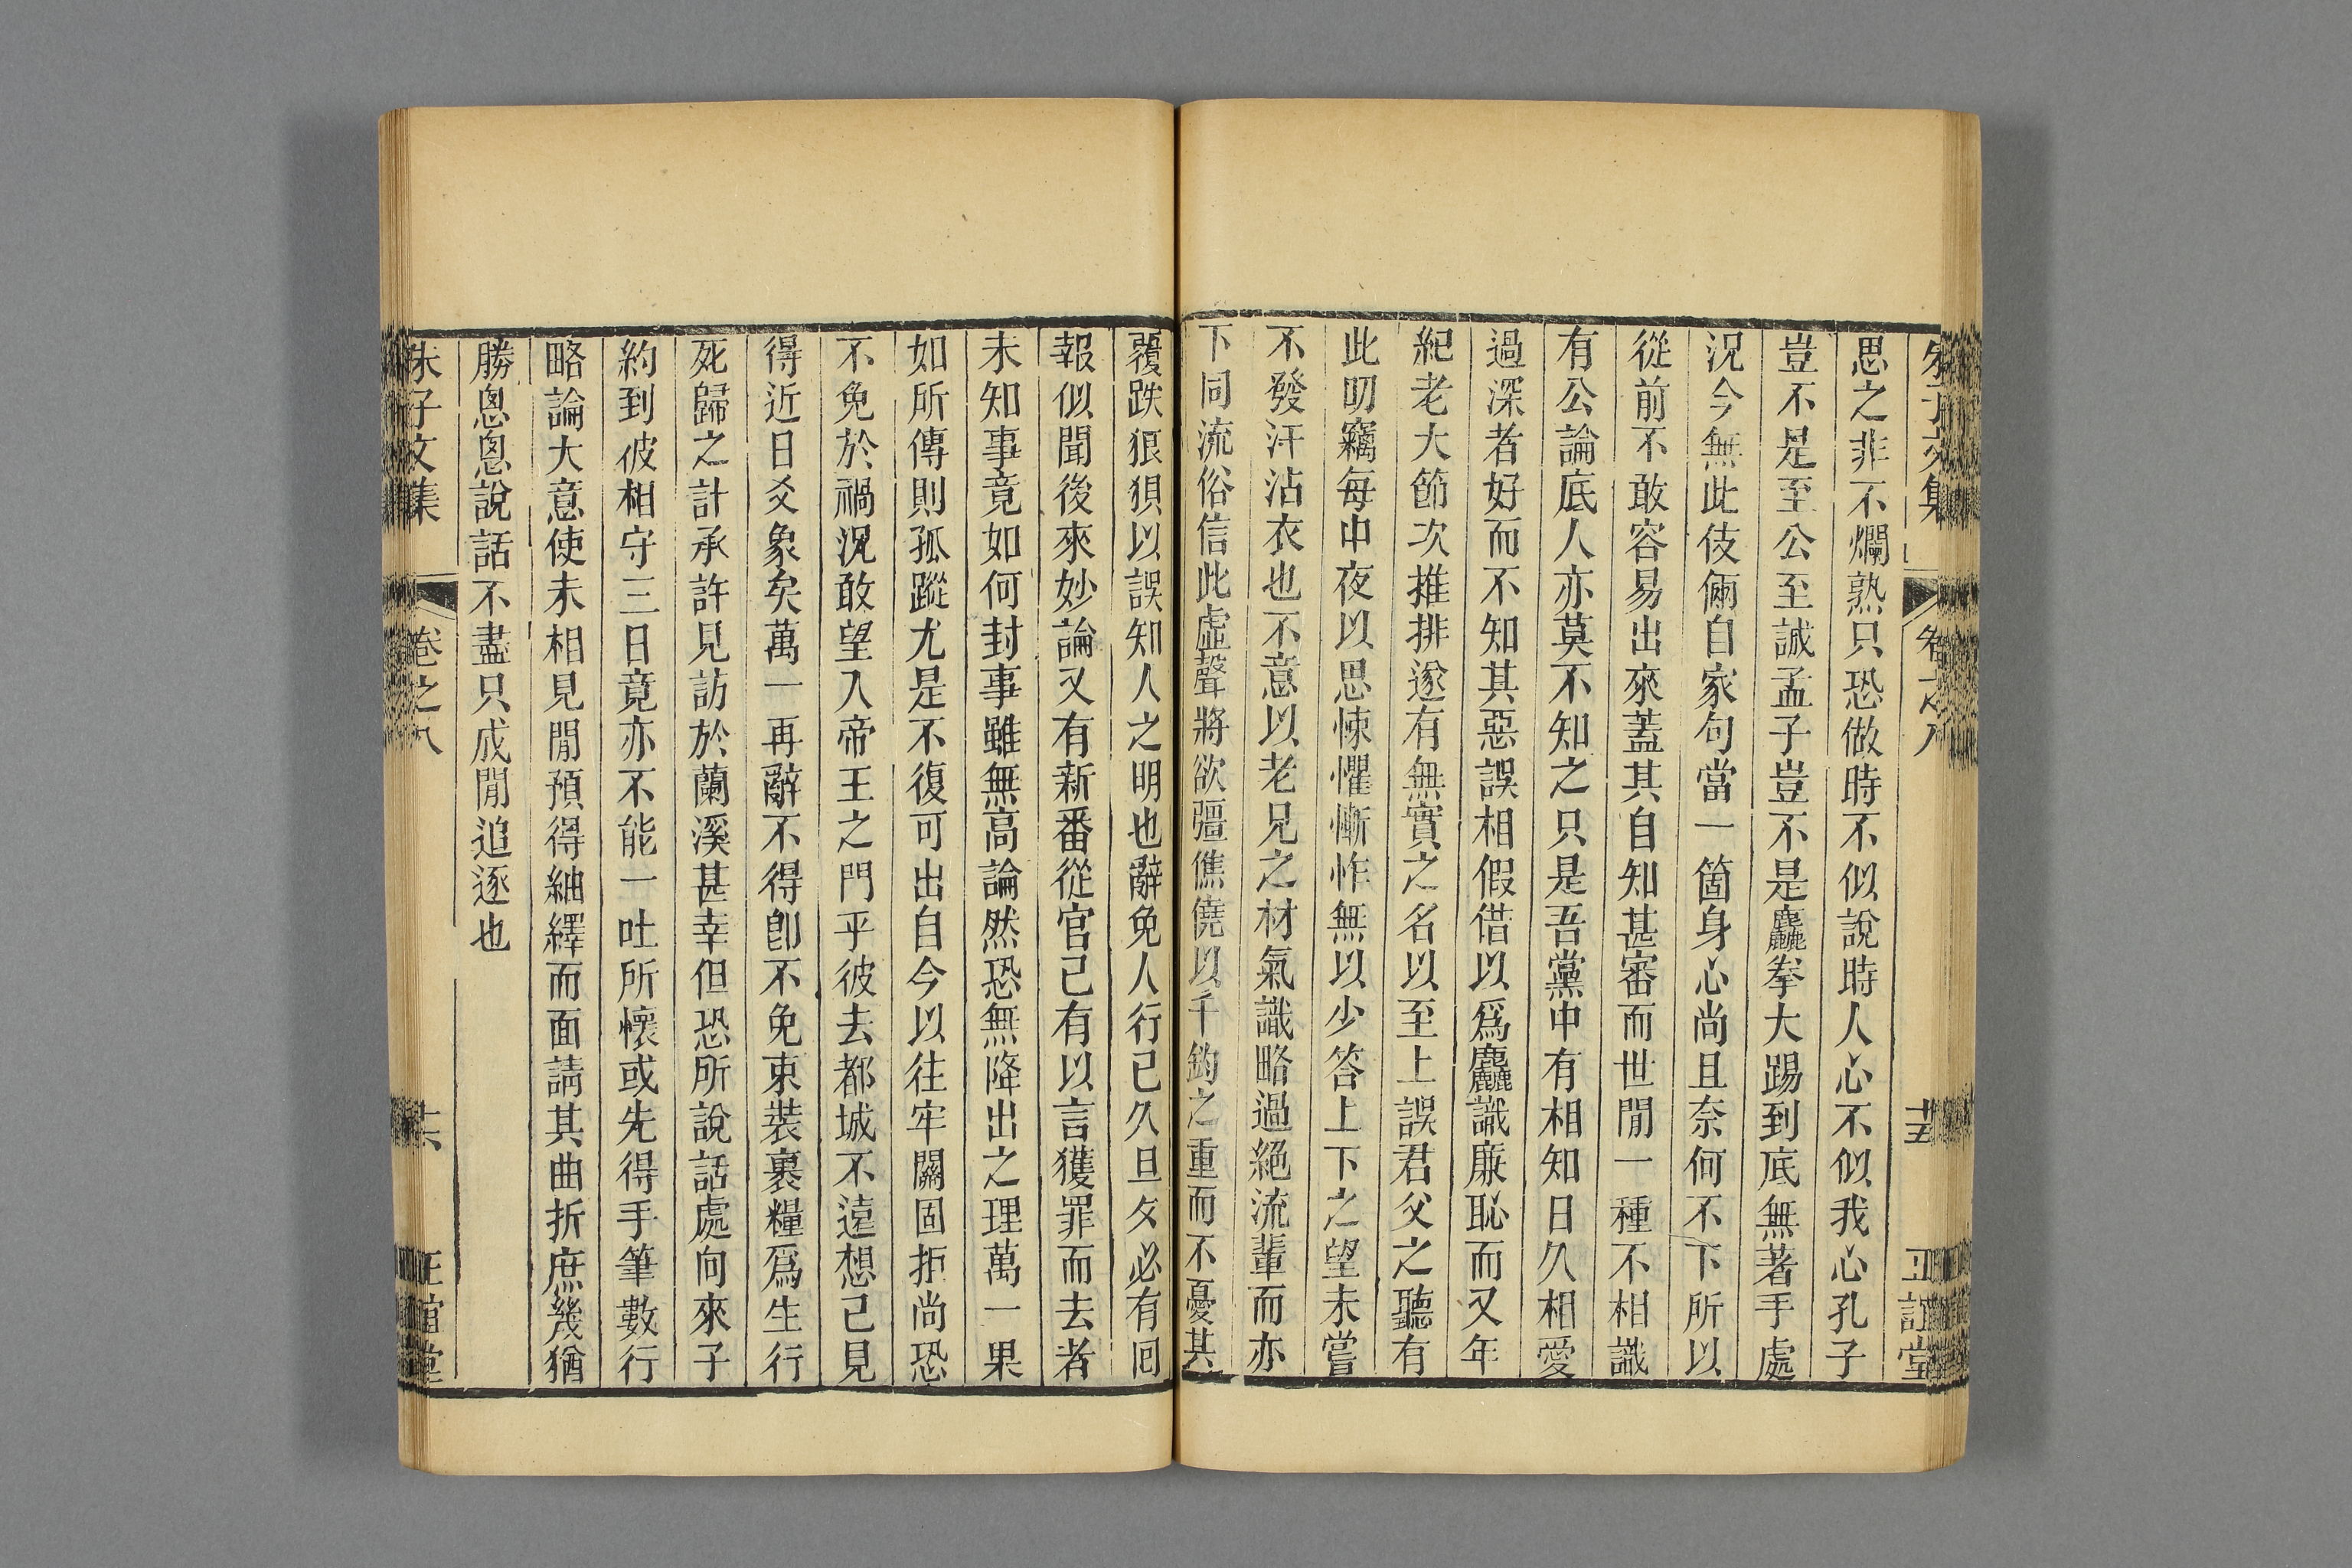 思之非不爛熟只恐做時不似說時人心不似我心孔子
豈不是至公至誠孟子豈不是麤拳大踢到底無著手處
況今無此伎倆自家句當一箇身心尚且奈何不下所以
從前不敢容易出來蓋其自知甚審而世閒一種不相識
有公論底人亦莫不知之只是吾黨中有相知日久相愛
過深者好而不知其惡誤相假借以爲麤識廉恥而又年
紀老大節次推排遂有無實之名以至上誤君父之聽有
此叨竊每中夜以思悚懼慚怍無以少答上下之望未嘗
不發汗沾衣也不意以老兄之材氣識略過絕流輩而亦
下同流俗信此虛聲將欲彊僬僥以千鈞之重而不憂其
覆跌狼狽以誤知人之明也辭免人行已久旦夕必有回
報似聞後來妙論又有新番從官已有以言獲罪而去者
未知事竟如何封事雖無高論然恐無降出之理萬一果
如所傳則孤蹤尤是不復可出自今以往牢關固拒尚恐
不免於禍況敢望入帝王之門乎彼去都城不遠想已見
得近日爻象矣萬一再辭不得卽不免束裝裹糧爲生行
死歸之計承許見訪於蘭溪甚幸但恐所說話處向來子
約到彼相守三日竟亦不能一吐所懷或先得手筆數行
略論大意使未相見閒預得紬繹而面請其曲折庶幾猶
勝悤悤說話不盡只成閒追逐也
朱子文集 卷之八